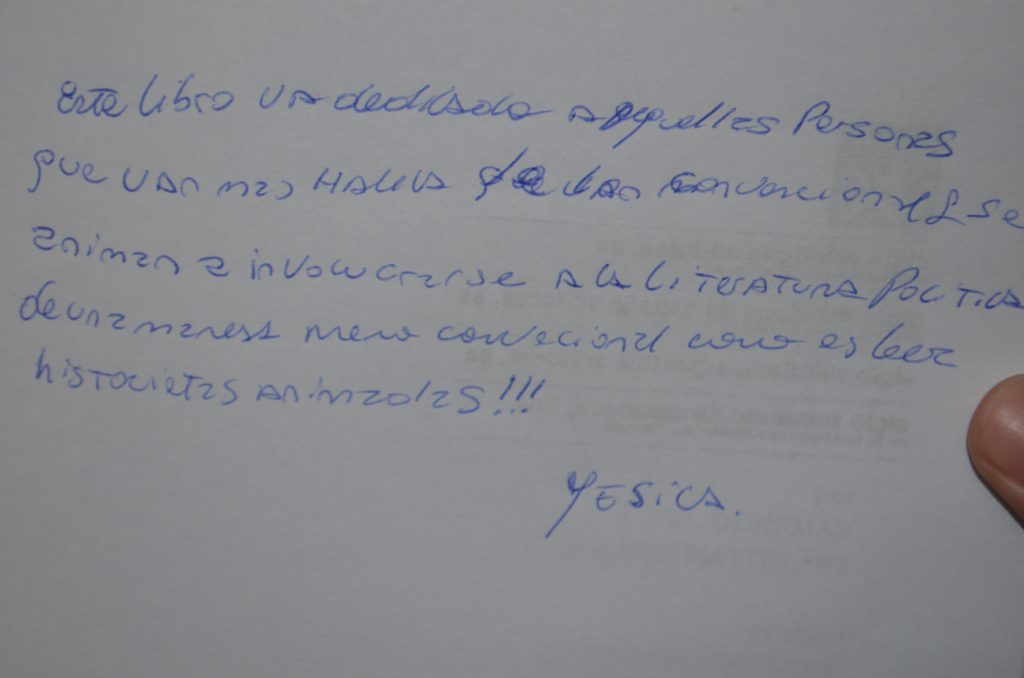 Este libro va dedicado a aquellas Personas
que van mas HALLA de tan convencional & se
animan a involucrarse a la LITERATURA POLITICA
de una manera meno convecional como es leer
historietas animadas!!!
YESICA.